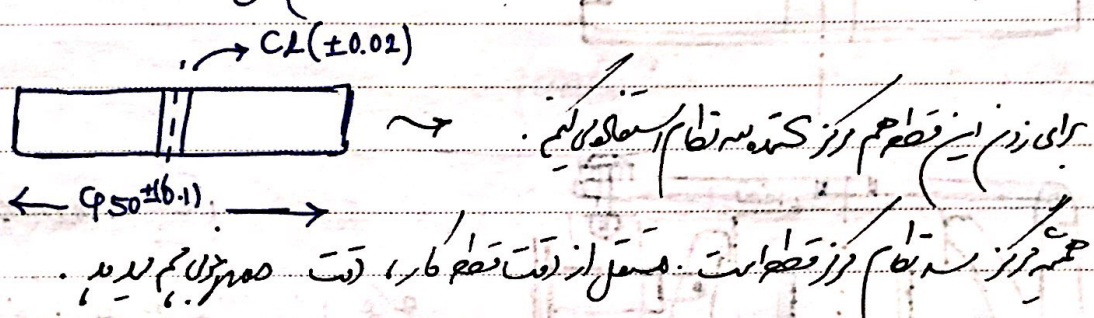 CL(±0.02)
برای زدن این قطعه هم مرکز کننده سه نظام استفاده می کنیم.
φ50±(0.1)
همیشه مرکز سه نظام مرکز قطعه است. مستقل از دقت قطعه کار، دقت